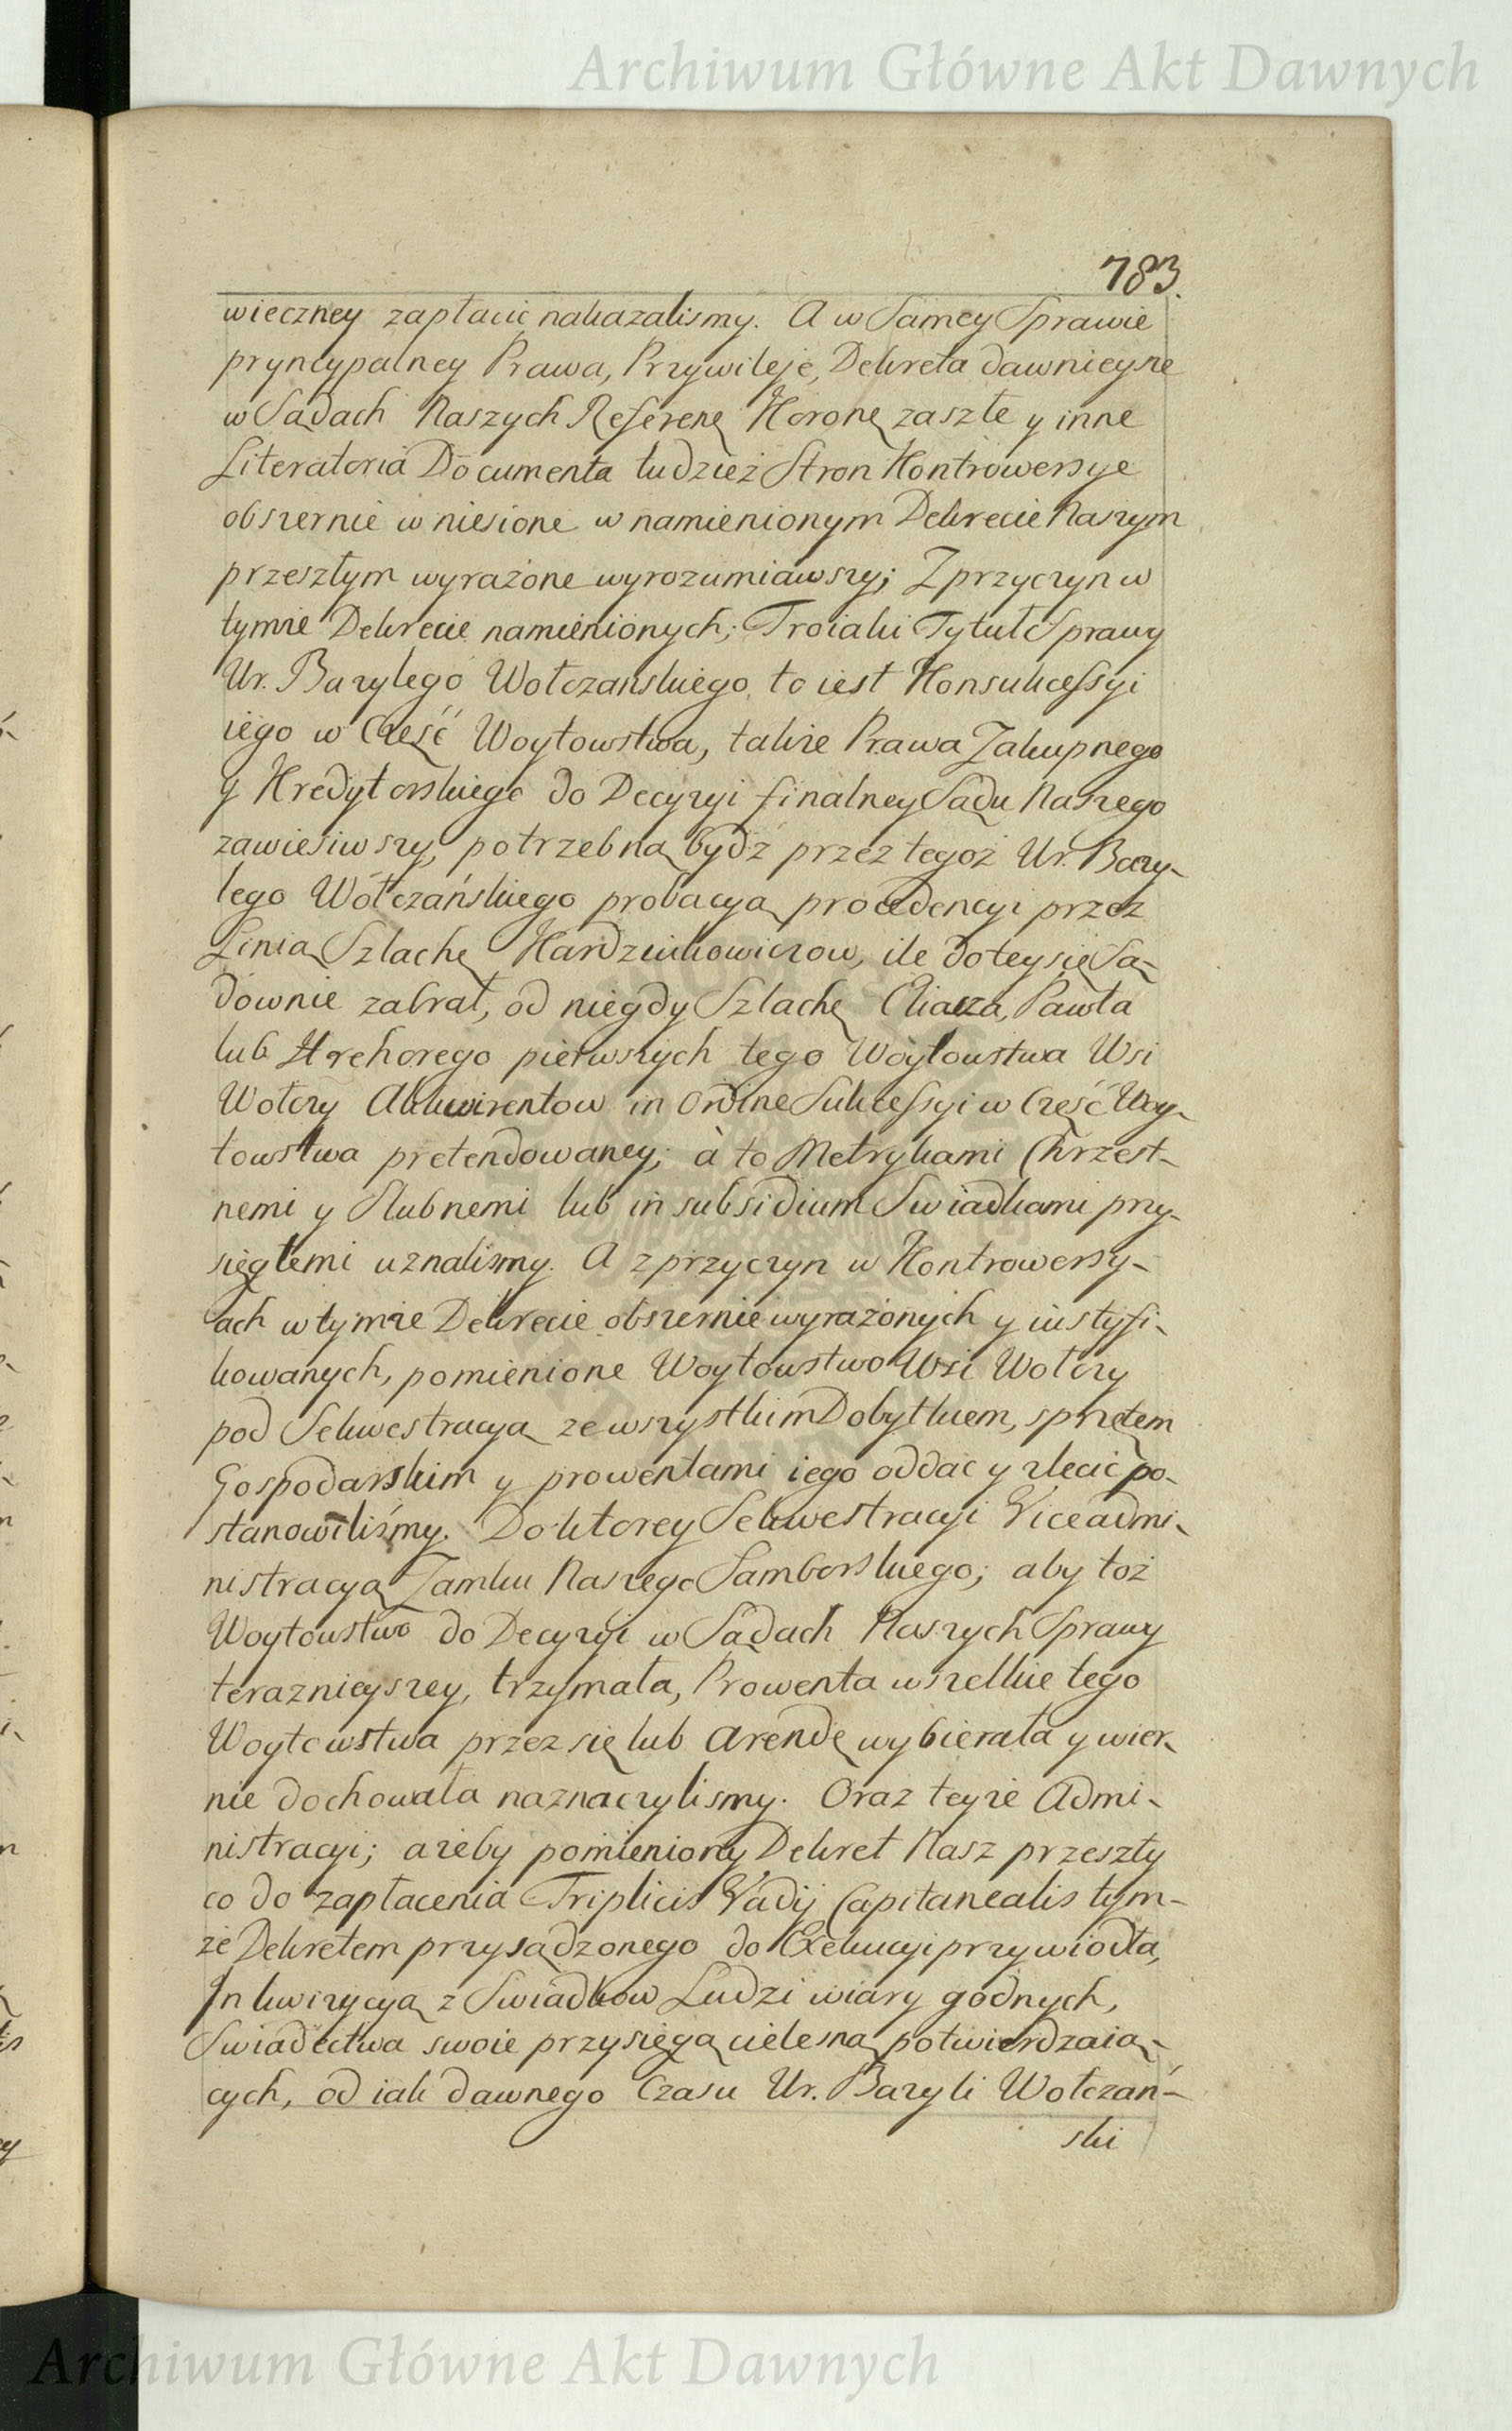 Archiwum Główne Akt Dawnych
783.
wieczney zapłacić nakazalismy. A w Samey Sprawie
pryncypalney Prawa, Przywileje, Dekreta dawnieysze
w Sądach Naszych Referenę Koronę zaszłe y inne
Literatoria Documenta tudzież Stron Kontrowersye
obszernie wniesione w namienionym Dekrecie Naszym
przeszłym wyrażone wyrozumiawszy; Z przyczyn w
tymże Dekrecie namienionych; Troiaki Tytuł Sprawy
Ur. Bazylego Wołczanskiego, to iest Konsukcessyi
iego w Cżęść Woytowstwa, także Prawa Zakupnego
y Kredytorskiego do Decyzyi finalney Sądu Naszego
zawiesiwszy, potrzebną bydź przez tegoż Ur. Bazy-
lego Wołczańskiego probacyą procedencyi przez
Linią Szlachę Kardziukowiczow, ile do tey się Są-
downie zabrał, od niegdy Szlachę Eliasza, Pawła
lub Hrehorego pierwszych tego Woytowstwa Wsi
Wołczy Akkwirentow in Ordine Sukcessyi w Część Woy-
towstwa pretendowaney; à to Metrykami Chrzest-
nemi y Slubnemi lub in subsidium Swiadkami przy-
sięgłemi uznalismy. A z przyczyn w Kontrowersy-
ach w tymże Dekrecie obszernie wyrażonych y iustyfi-
kowanych, pomienione Woytowstwo Wsi Wołczy
pod Sekwestracyą ze wszystkim Dobytkiem, sprzętem
Gospodarskim y prowentami iego oddać y zlecić po-
stanowiliśmy. Do ktorey Sekwestracyi Viceadmi-
nistracyą Zamku Naszego Samborskiego; aby toż
Woytowstwo do Decyzyi w Sądach Naszych Sprawy
teraznieyszey, trzymała, Prowenta wszelkie tego
Woytowstwa przez się lub Arendę wybierała y wier-
nie dochowała naznaczylismy. Oraz teyże Admi-
nistracyi; ażeby pomieniony Dekret Nasz przeszły
co do zapłacenia Triplicis Vadij Capitanealis tym-
że Dekretem przysądzonego do Exekucyi przywiodła,
Inkwizycyą z Swiadkow Ludzi wiary godnych,
Swiadectwa swoie przysięgą cielesną potwierdzaią-
cych, od iak dawnego Czasu Ur. Bazyli Wołczań-
ski
Archiwum Główne Akt Dawnych